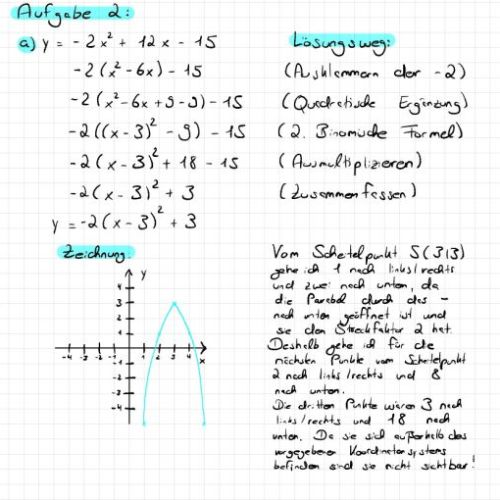 Aufgabe 2:
a) y = -2x² + 12x - 15
Lösungsweg:
-2(x² - 6x) - 15
(Ausklammern der -2)
-2(x² - 6x + 9 - 9) - 15
(Quadratische Ergänzung)
-2((x - 3)² - 9) - 15
(2. Binomische Formel)
-2(x - 3)² + 18 - 15
(Ausmultiplizieren)
-2(x - 3)² + 3
(Zusammenfassen)
y = -2(x - 3)² + 3
Zeichnung:
y
4
3
2
1
-4 -3 -2 -1 1 2 3 4
x
-1
-2
-3
-4
Vom Scheitelpunkt S(3|3)
gehe ich 1 nach links/rechts
und zwei nach unten, da
die Parabel durch das -
nach unten geöffnet ist und
sie den Streckfaktor 2 hat.
Deshalb gehe ich für die
nächsten Punkte vom Scheitelpunkt
2 nach links/rechts und 8
nach unten.
Die dritten Punkte wären 3 nach
links/rechts und 18 nach
unten. Da sie sich außerhalb des
vorgegebenen Koordinatensystems
befinden sind sie nicht sichtbar!